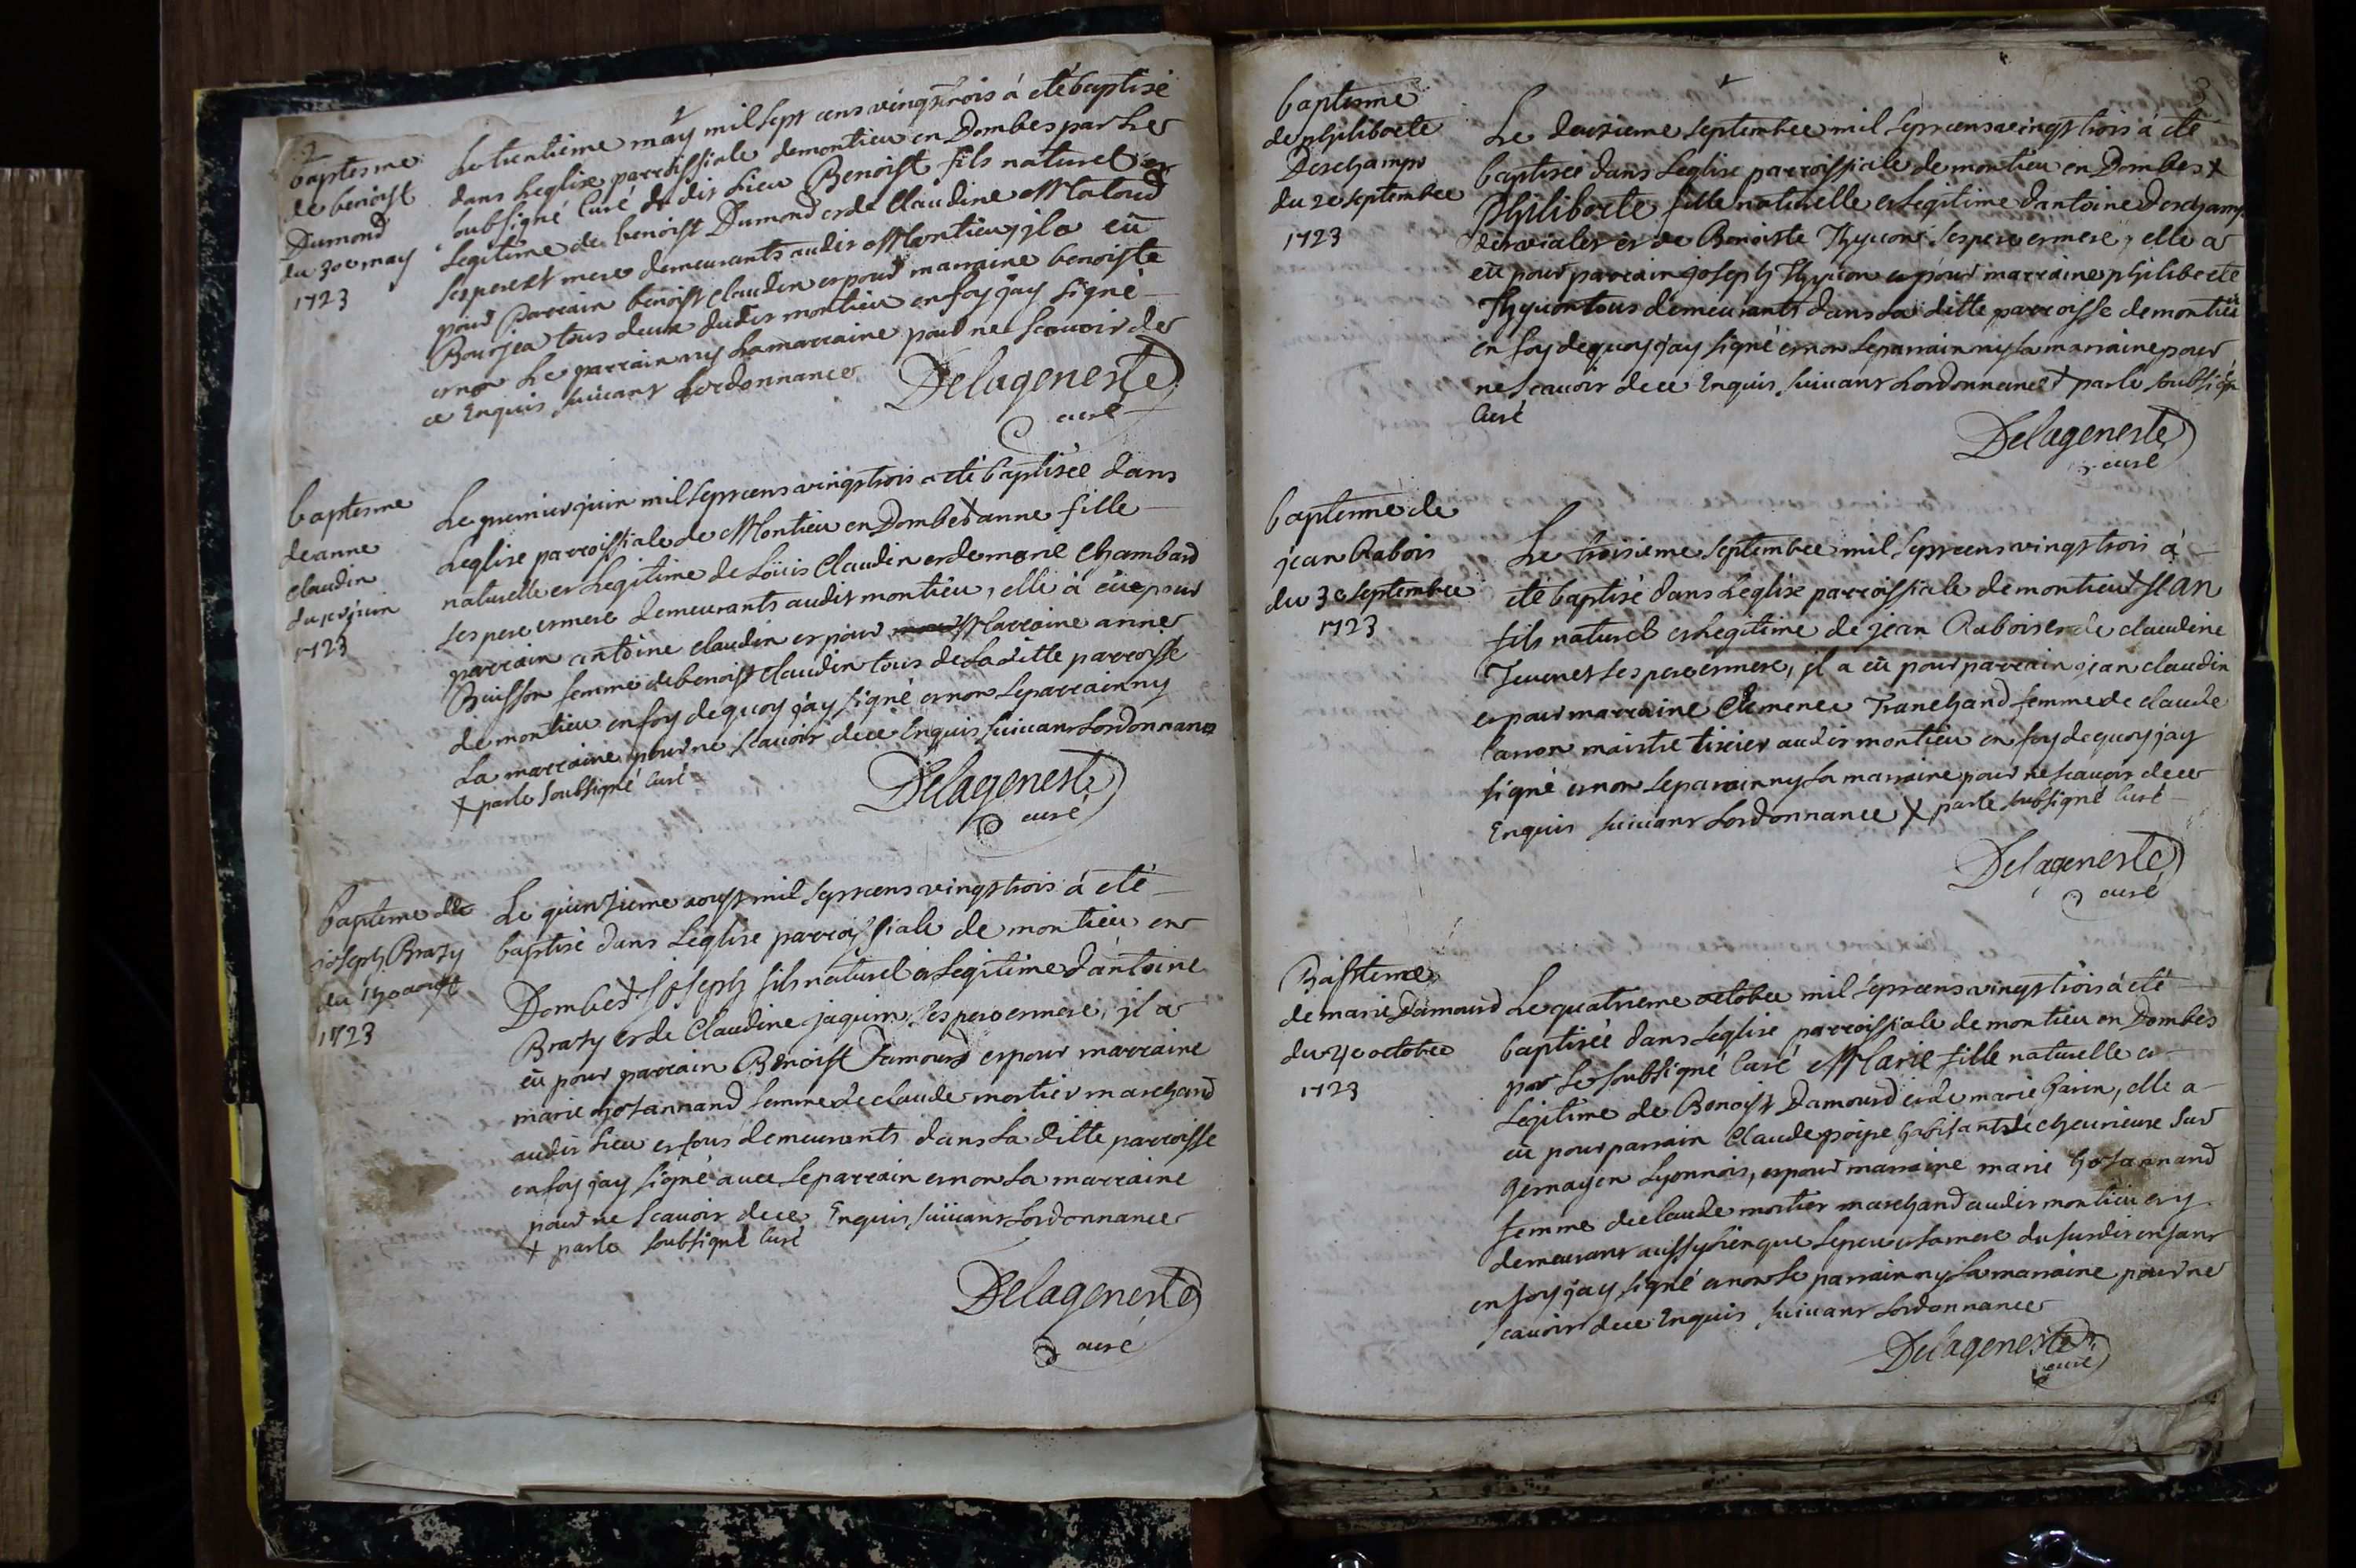 2
baptesme
de benoist
Dumond
du 30e may
1723
Le trentième may mil sept cens vingt trois à eté baptisé
dans Leglise parroissiale de montieu en Dombes par Le
soubsigné Curé du dit Lieu Benoist fils naturel et
Legitime de benoist Dumond et de Claudine Matoud
ses pere et mere demeurants audit Montieu, il a eü
pour Parrain benoist Claudin et pour marraine benoiste
Bourjea tous deux dudit montieu en foy j'ay signé
et non Le parrain ny La marraine pour ne scavoir de
ce Enquis suivant Lordonnance
Delageneste
curé
baptesme
de anne
claudin
du 1er juin
1723
Le premier juin mil sept cens vingt trois a eté baptisée dans
Leglise parroissiale de Montieu en Dombes + anne fille
naturelle et Legitime de Loüis Claudin et de marie Chambard
ses pere et mere demeurants audit montieu, elle à eüe pour
parrain antoine claudin et pour Marraine anne
Buisson femme de benoist Claudin tous de La ditte parroisse
de montieu en foy de quoy j'ay signé et non Le parrain ny
La marraine pour ne scavoir de ce Enquis suivant Lordonnance
+ par le soubsigné Curé
Delageneste
curé
bapteme de
joseph Brazy
du 15e aoust
1723
Le quinzieme aoust mil sept cens vingt trois à eté
baptisé dans Leglise parroissiale de montieu en
Dombes + Joseph fils naturel et Legitime d'antoine
Brazy et de Claudine jaquin ses pere et mere, il a
eü pour parrain Benoist Damourd et pour marraine
marie josannand femme de claude mortier marchand
audit Lieu et tous demeurants dans La ditte parroisse
en foy j'ay signé avec Le parrain et non La marraine
pour ne scavoir de ce Enquis suivant Lordonnance
+ par le soubsigné Curé
Delageneste
curé
3
baptesme
de philiberte
Deschamps
du 2e septembre
1723
Le deuxieme septembre mil sept cens vingt trois à eté
baptisée dans Leglise parroissiale de montieu en Dombes +
Philiberte fille naturelle et Legitime d'antoine deschamps
dit vialet et de Benoiste Thyvon ses pere et mere, elle a
eü pour parrain joseph Thyvon et pour marraine philiberte
Thyvon tous demeurants dans La ditte parroisse de montieu
en foy de quoy j'ay signé et non Le parrain ny La marraine pour
ne scavoir de ce Enquis suivant Lordonnance + par le soubsigné
Curé
Delageneste
curé
baptesme de
jean Rabois
du 3e septembre
1723
Le troisieme septembre mil sept cens vingt trois à
eté baptisé dans Leglise parroissiale de montieu + Jean
fils naturel et Legitime de jean Rabois et de claudine
Jeunet ses pere et mere, il a eü pour parrain jean claudin
et pour marraine Clemence Tranchand femme de claude
Canon maistre tixier audit montieu en foy de quoy j'ay
signé et non Le parrain ny La marraine pour ne scavoir de ce
Enquis suivant Lordonnance + par le subsigné Curé
Delageneste
curé
Baptême
de marie Damourd
du 4e octobre
1723
Le quatrieme octobre mil sept cens vingt trois à eté
baptisée dans Leglise parroissiale de montieu en Dombes
par Le soubsigné Curé Marie fille naturelle et
Legitime de Benoist Damourd et de marie Garin, elle a
eü pour parrain Claude poipe habitant de chevrieure sur
gernay en Lyonnois, et pour marraine marie josannand
femme de claude mortier marchand audit montieu et y
demeurant aussy bien que Le pere et La mere du susdit enfant
en foy j'ay signé et non Le parrain ny La marraine pour ne
scavoir de ce Enquis suivant Lordonnance
Delageneste
curé